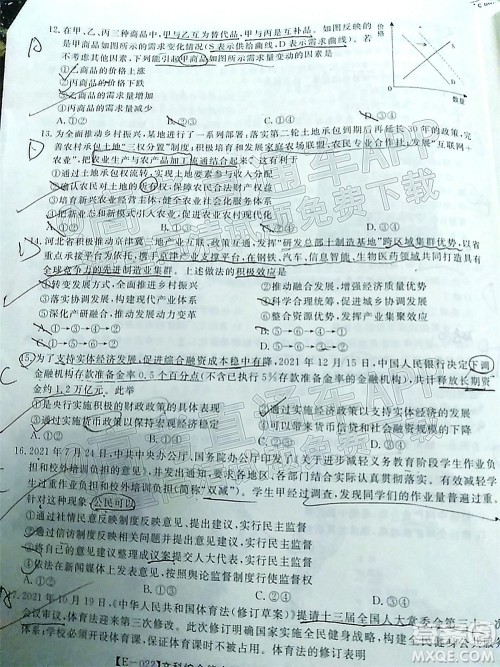 12.在甲、乙、丙三种商品中,甲与乙互为替代品,甲与丙是互补品。如图反映的
是甲商品如图所示的需求变化情况(S表示供给曲线,D表示需求曲线)。若
不考虑其他因素,下列能引起甲商品如图所示需求量变动的因素是
①乙商品的价格上涨
②丙商品的价格下降
③乙商品的需求量增加
④丙商品的需求量减少
A.①② B.①③ C.②④ D.③④
价格
S
D
数量
13.为全面推动乡村振兴,某地进行了一系列部署:落实第二轮土地承包到期后再延长30年的政策,完
善农村承包土地“三权分置”制度;积极培育和发展家庭农场联盟、农民专业合作社;发展“互联网+
农业”,把农业生产与农产品加工流通结合起来。这有利于
①通过土地承包权流转,实现土地要素参与收入分配
②确认农民对土地的所有权,保障农民合法财产权益
③培育新兴农业经营主体,健全农业社会化服务体系
④把新业态和新模式引入农业,促进农业农村现代化
A.①② B.①③ C.②④ D.③④
14.河北省积极推动京津冀三地产业互联、政策互通,发挥“研发总部+制造基地”跨区域集群优势,以省
重点承接平台为依托,携手京津产业支撑平台,在钢铁、汽车、信息智能、生物医药领域共同打造具有
全球竞争力的先进制造业集群。上述做法的积极效应是
①转变发展方式,全面深化改革 ②推动融合发展,增强经济质量优势
③落实协调发展,构建现代化产业体系 ④科学合理统筹,促进城乡协调发展
⑤深化产研融合,推动发展动力变革 ⑥整合资源优势,发挥产业集聚效应
A.①→③→④ B.②→④→⑥
C.⑤→①→② D.⑥→⑤→②
15.为了支持实体经济发展,促进综合融资成本稳中有降,2021年12月15日,中国人民银行决定下调
金融机构存款准备金率0.5个百分点(不含已执行5%存款准备金率的金融机构),共计释放长期资
金约1.2万亿元。此举
①是央行实施积极的财政政策的具体表现 ②通过实施经济政策以支持实体经济的发展
③通过实施货币政策以保持宏观经济稳定 ④可以带来货币信贷和社会融资的增长
A.①② B.①③ C.②④ D.③④
16.2021年7月24日,中共中央办公厅、国务院办公厅印发了《关于进一步减轻义务教育阶段学生作业负
担和校外培训负担的意见》,并发出通知,要求各地区、各部门结合实际认真贯彻落实。有效减轻学生
过重作业负担和校外培训负担(简称“双减”)。学生甲经过调查,发现同学们的作业量普遍过重。
针对这种现象,公民可以
①通过社情民意反映制度反映意见、提出建议,实行民主监督
②通过信访制度反映相关问题,提出意见建议,实行民主监督
③将自己的意见建议整理成议案提交人大代表,实行民主监督
④依法在新闻媒体上发表意见、提出批评建议,实行民主监督
A.①② B.①③ C.②④ D.③④
17.2021年10月19日,《中华人民共和国体育法(修订草案)》提请十三届全国人大常委会第三
会议审议,体育法迎来全面修订。此次修订明确国家实施全民健身战略,构
体系;学校必须开设体育课,保证体育课时不被占用。体育法的修订表明
【E-022】